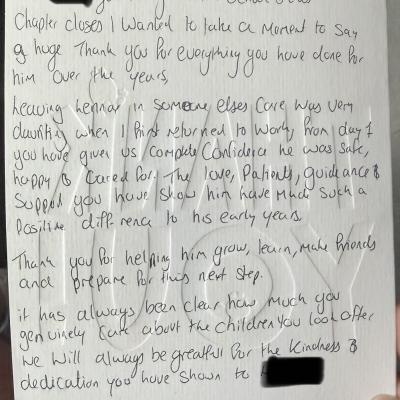 Chapter closes I wanted to take a moment to say
a huge Thank you for everything you have done for
him over the years,
Leaving in someone elses care was very
daunting when I first returned to work, from day 1
you have given us complete confidence he was safe,
happy & cared for. The love, Patients, guidance &
Support you have show him have made such a
Positive difference to his early years.
Thank you for helping him grow, learn, make friends
and prepare for this next step.
it has always been clear how much you
genuinely care about the children you look after
we will always be greatful for the kindness &
dedication you have shown to